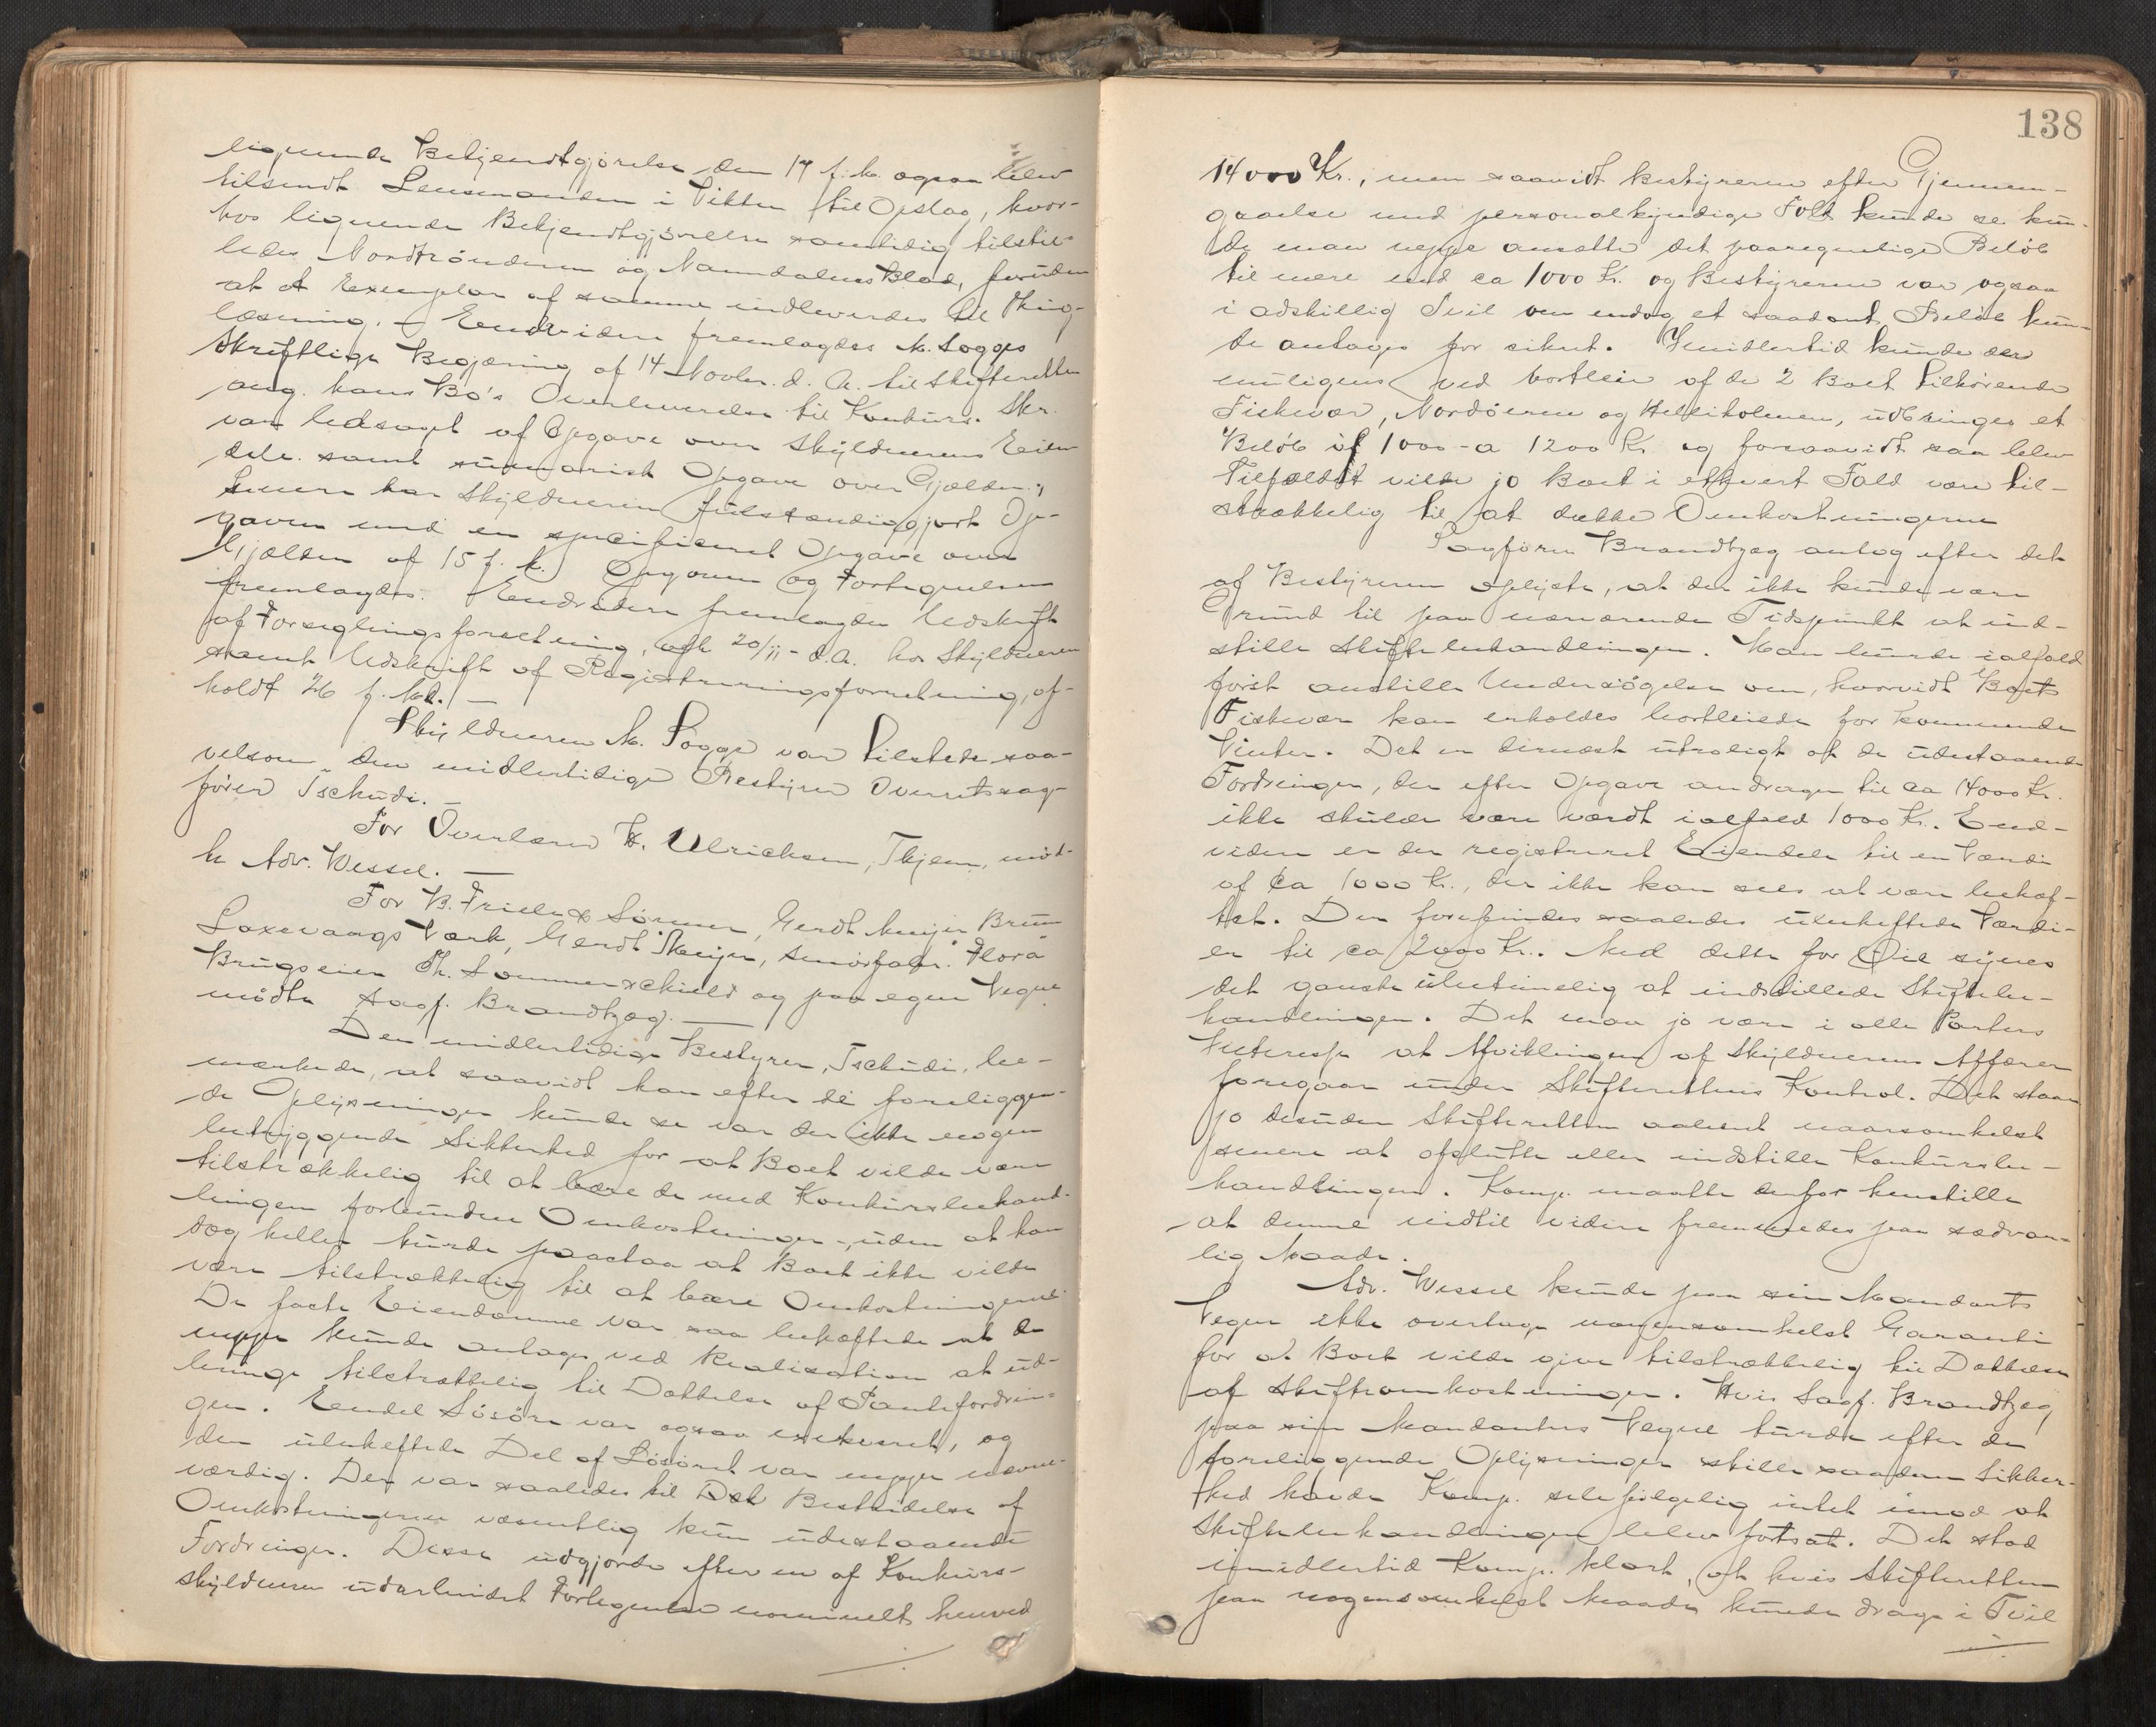 lignende Bekjendtgjørelse den 17 f. M. ogsaa blev
tilsendt Lensmanden i Vikten til Opslag, hvor-
hos lignende Bekjendtgjørelse samtidig tilstil-
ledes Nordtrønderen og Namdalens Blad, foruden
at et Exemplar af samme indleveredes til Thing-
læsning. – Endvidere fremlagdes M. Sogges
skriftlige Begjæring af 14 Novbr. d. A. til Skifteretten
ang. hans Bo's Overleverelse til Konkurs. Skr.
var ledsaget af Opgave over Skyldnerens Eien-
dele samt summarisk Opgave over Gjælden;
senere har Skyldneren fuldstændiggjort Op-
gaven med en specificeret Opgave over
Gjælden af 15 f. M. Opgaven og Fortegnelsen
fremlagdes. Endvidere fremlagdes Udskrift
af Forseglingsforretning, afh. 20/11 - d.A. hos Skyldneren
samt Udskrift af Registreringsforretning, af-
holdt 26 f. Md. –
Skyldneren M. Sogge var tilstede saa-
velsom den midlertidige Bestyrer Overretssag-
fører Tschudi. –
For Overlærer H. Ulrichsen, Thjem, mød-
te Adv. Wessel. –
For B. Friele & Sønner, Gerdt Meyer Bruun
Laxevaags Værk, Gerdt Meyer, Smørfabr. "Flora"
Brugseier Th. Sommerschield og paa egne Vegne
mødte Sagf. Brandtzæg. –
Den midlertidige Bestyrer, Tschudi, be-
mærkede, at saavidt han efter de foreliggen-
de Oplysninger kunde se var der ikke nogen
betryggende Sikkerhed for at Boet vilde være
tilstrækkelig til at bære de med Konkursbehand-
lingen forbundne Omkostninger –, uden at han
dog heller turde paastaa at Boet ikke vilde
være tilstrækkelig til at bære Omkostningerne.
De faste Eiendomme var saa behæftede at de
neppe kunde antages ved Realisation at ud-
bringe tilstrækkelig til Dækkelse af Pantefordrin-
gen. Endel Løsøre var ogsaa exekveret, og
den ubeheftede Del af Løsøret var neppe nævne-
værdig. Der var saaledes til Det Bestridelse af
Omkostningerne væsentlig kun udestaaende
Fordringer. Disse udgjorde efter en af Konkurs-
skyldneren udarbeidet Fortegnelse nominelt henved
138
14000 Kr., men saavidt Bestyreren efter Gjennem-
gaaelse med personalkyndige Folk kunde se kun-
de man neppe ansætte det paaregnelige Beløb
til mere end ca 1000 Kr. og Bestyreren var ogsaa
i adskillig Tvil om endog et saadant Beløb kun-
de antages for sikret. Imidlertid kunde der
muligens ved bortleie af de 2 Boet tilhørende
Fiskevær, Nordøerne og Helliholmen, udbringes et
Beløb af 1000 - a 1200 Kr. og forsaavidt saa blev
Tilfældet vilde jo Boet i ethvert Fald være til-
strækkelig til at dække Omkostningerne
Sagfører Brandtzæg antog efter det
af Bestyreren oplyste, at der ikke kunde være
Grund til paa nærværende Tidspunkt at ind-
stille Skiftebehandlingen. Man burde ialfald
først anstille Undersøgelse om, hvorvidt Boets
Fiskevær kan erholdes bortleiede for kommende
Vinter. Det er dernæst utroligt at de udestaaende
Fordringer, der efter Opgave andrager til ca 14000 Kr.
ikke skulde være værdt ialfald 1000 Kr. End-
videre er der registreret Eiendele til en Værdi
af ca 1000 Kr., der ikke kan sees at være behæf-
tet. Der forefindes saaledes ubeheftede Værdi-
er til ca 2000 Kr. Med dette for Øie synes
det ganske ubetimelig at indstillede Skiftebe-
handlingen. Det maa jo være i alle Parters
Interesse at Afviklingen af Skyldnerens Affærer
foregaar under Skifterettens Kontrol. Det staar
jo desuden Skifteretten aabent naarsomhelst
senere at afslutte eller indstille Konkursbe-
handlingen. Komp. maatte derfor henstille
at denne indtil videre fremmedes paa sædvan-
lig Maade.
Adv. Wessel kunde paa sin Mandants
Vegne ikke overtage nogensomhelst Garanti
for at Boet vilde give tilstrækkelig til Dækkelse
af Skifteomkostninger. Hvis Sagf. Brandtzæg
paa sine Mandanters Vegne turde efter de
foreliggende Oplysninger stille saadan Sikker-
hed havde Komp. selvfølgelig intet imod at
Skiftebehandlingen blev fortsat. Det stod
imidlertid Komp. klart, at hvis Skifteretten
paa nogensomhelst Maade kunde drage i Tvil